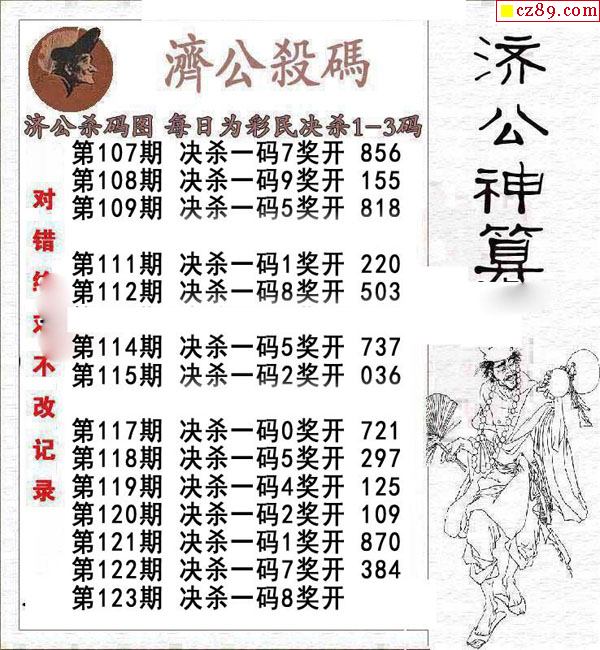 cz89.com
濟公殺碼
济公杀码图 每日为彩民决杀1-3码
第107期 决杀一码7奖开 856
第108期 决杀一码9奖开 155
第109期 决杀一码5奖开 818
第111期 决杀一码1奖开 220
第112期 决杀一码8奖开 503
第114期 决杀一码5奖开 737
第115期 决杀一码2奖开 036
第117期 决杀一码0奖开 721
第118期 决杀一码5奖开 297
第119期 决杀一码4奖开 125
第120期 决杀一码2奖开 109
第121期 决杀一码1奖开 870
第122期 决杀一码7奖开 384
第123期 决杀一码8奖开
对错 不改记录
济公神算